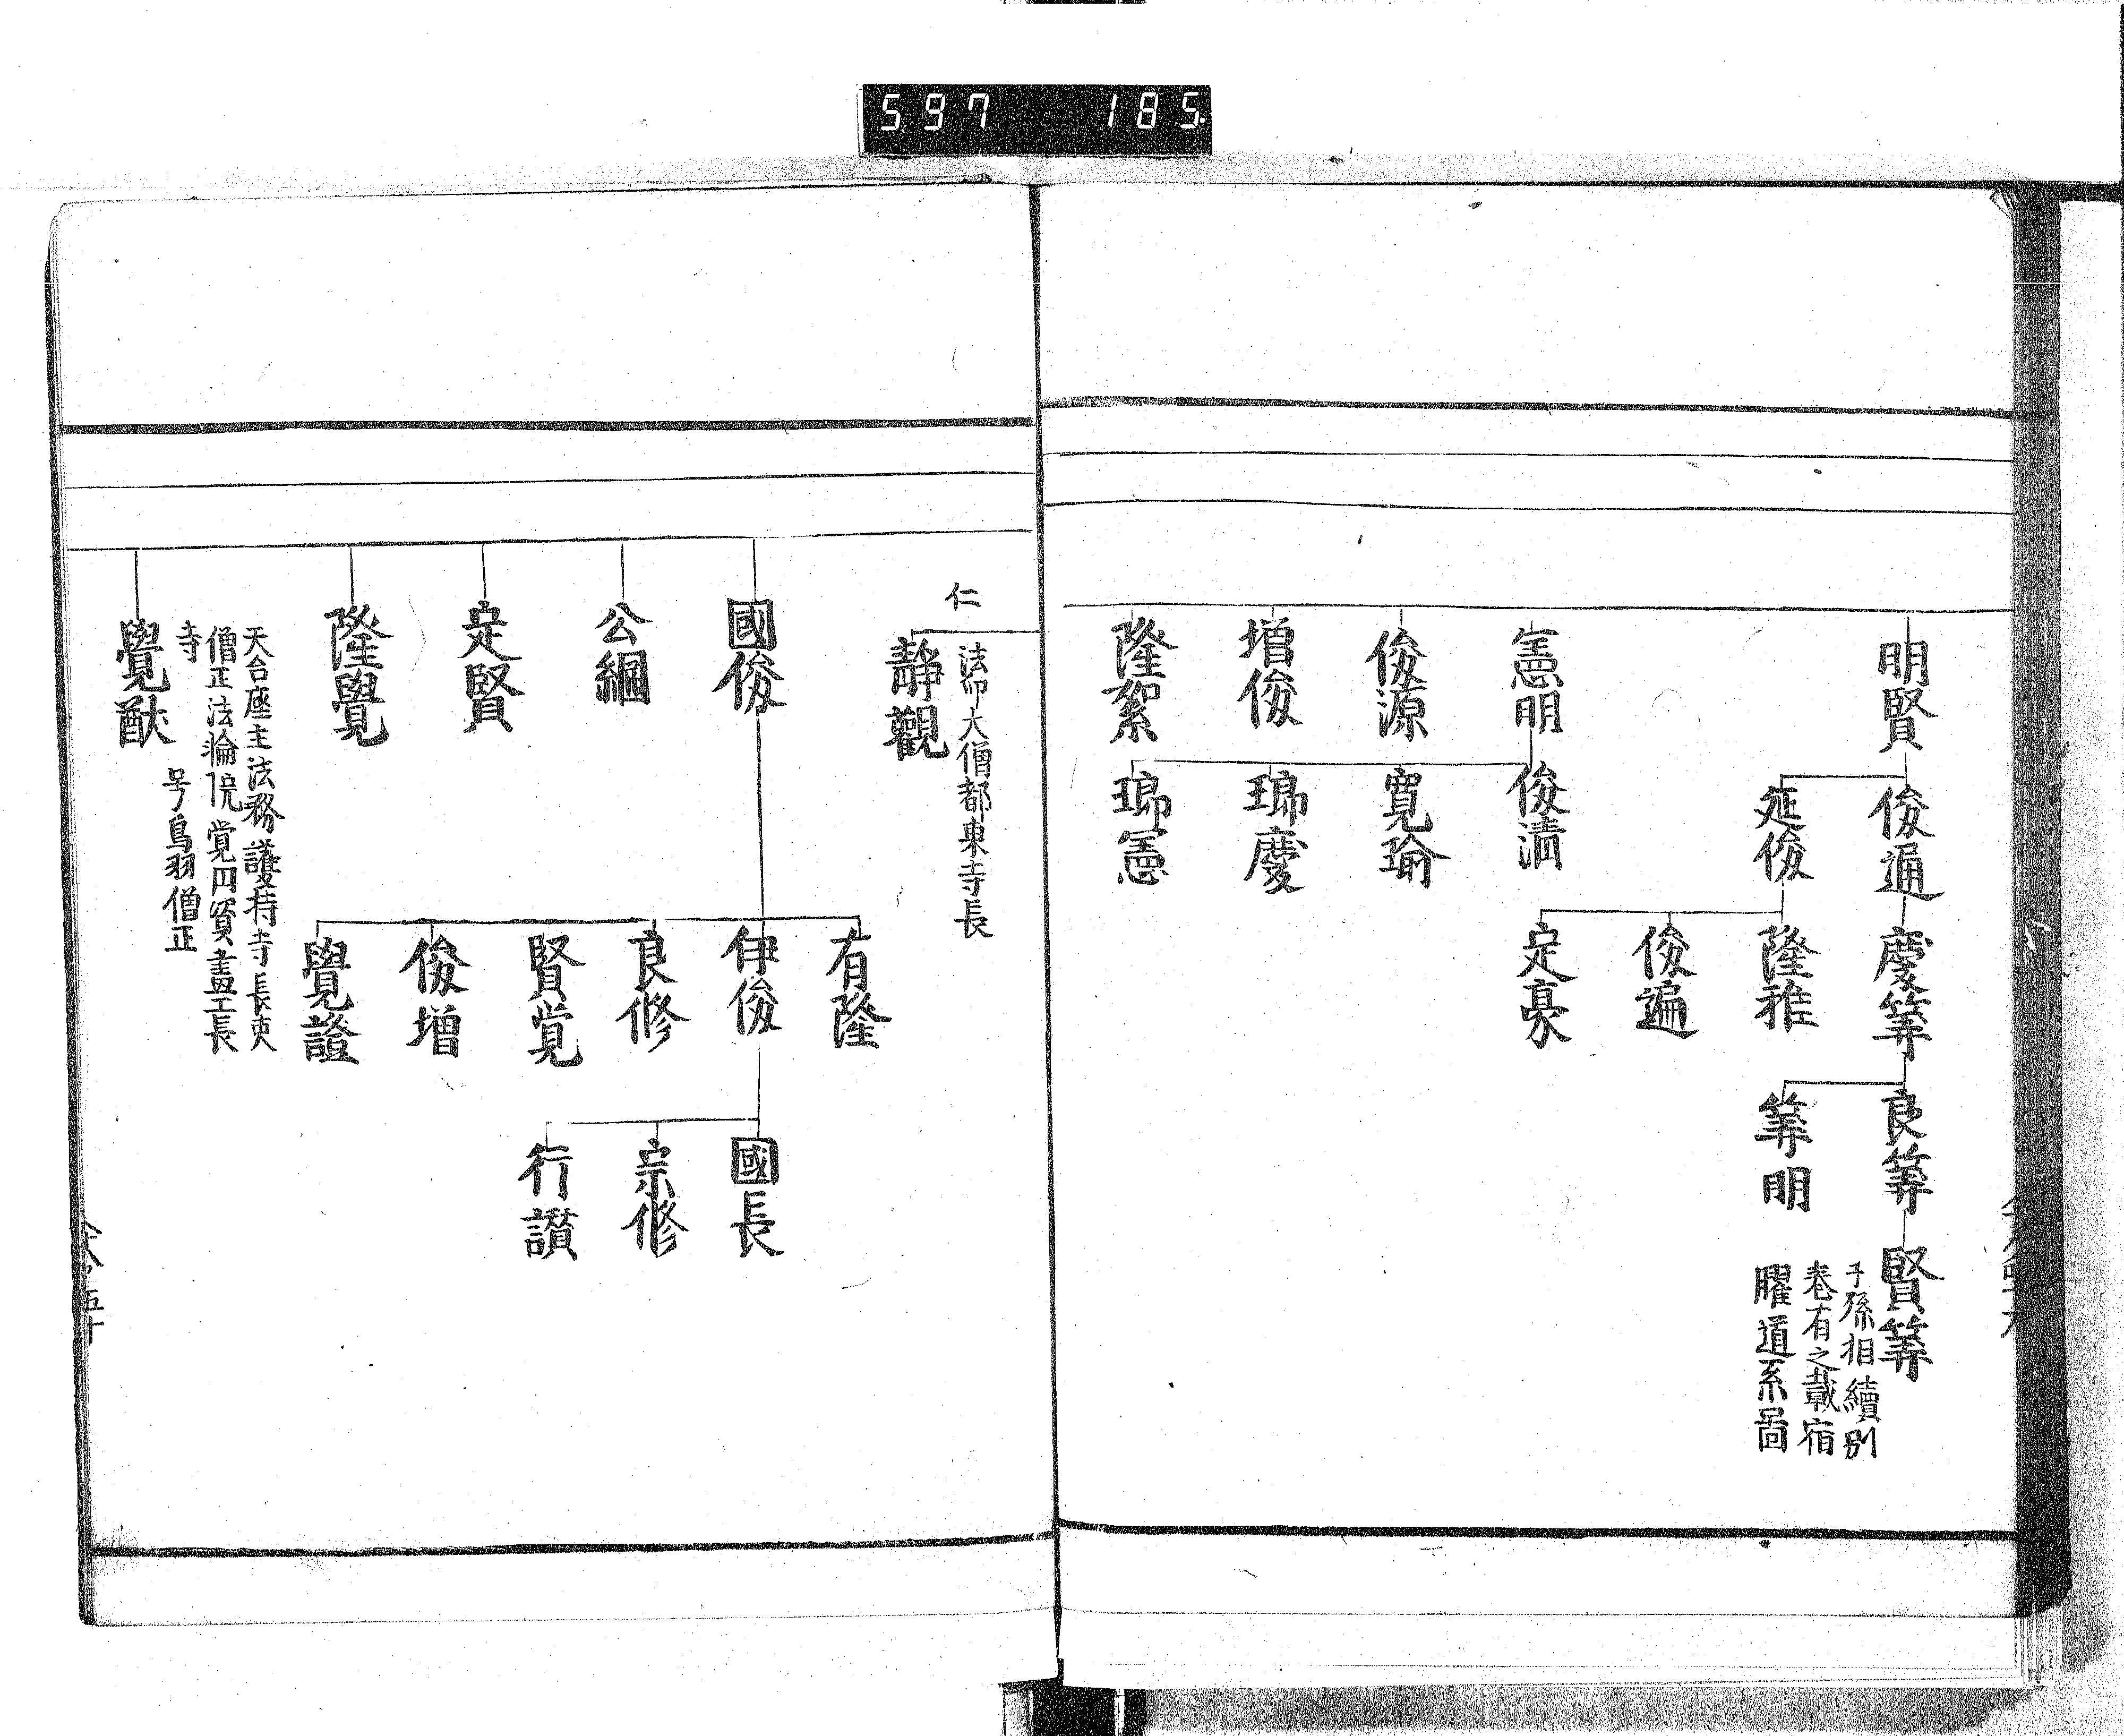 597 185
明賢
俊通
慶筭
良筭
賢筭
子孫相續別
卷有之載宿
曜道系啚
筭明
延俊
隆雅
俊遍
定豪
憲明
俊清
俊源
寛瑜
増俊
瑯慶
隆絮
瑯憲
仁
法印大僧都東寺長
靜觀
國俊
有隆
伊俊
國長
良修
宗修
賢覚
行讃
俊増
覺證
公綱
定賢
隆覺
天台座主法務護持寺長吏
僧正法淪院覚円資畫工長
寺
覺猷
号鳥羽僧正